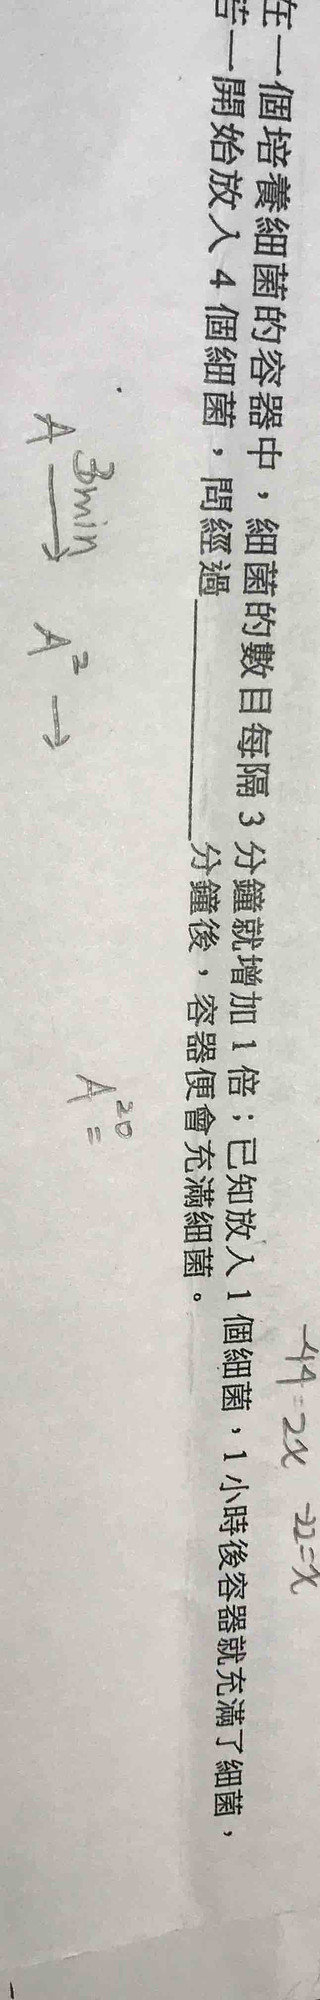 -44=2x -22=x
在一個培養細菌的容器中，細菌的數目每隔 3 分鐘就增加 1 倍；已知放入 1 個細菌，1 小時後容器就充滿了細菌，
若一開始放入 4 個細菌，問經過________分鐘後，容器便會充滿細菌。
A 3min→ A² →
A²⁰=